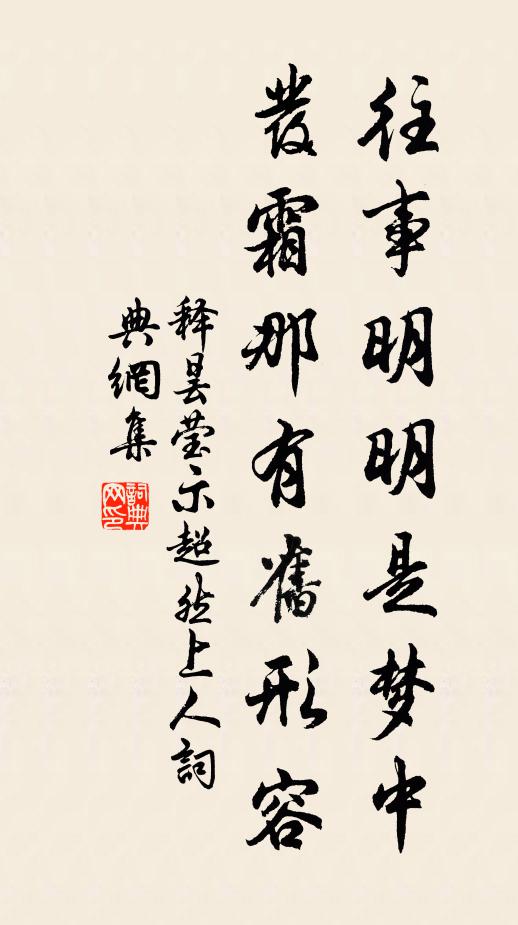 往事明明是梦中
发霜那有舊形容
释昙莹示超然上人詞
典網集
詞典网印